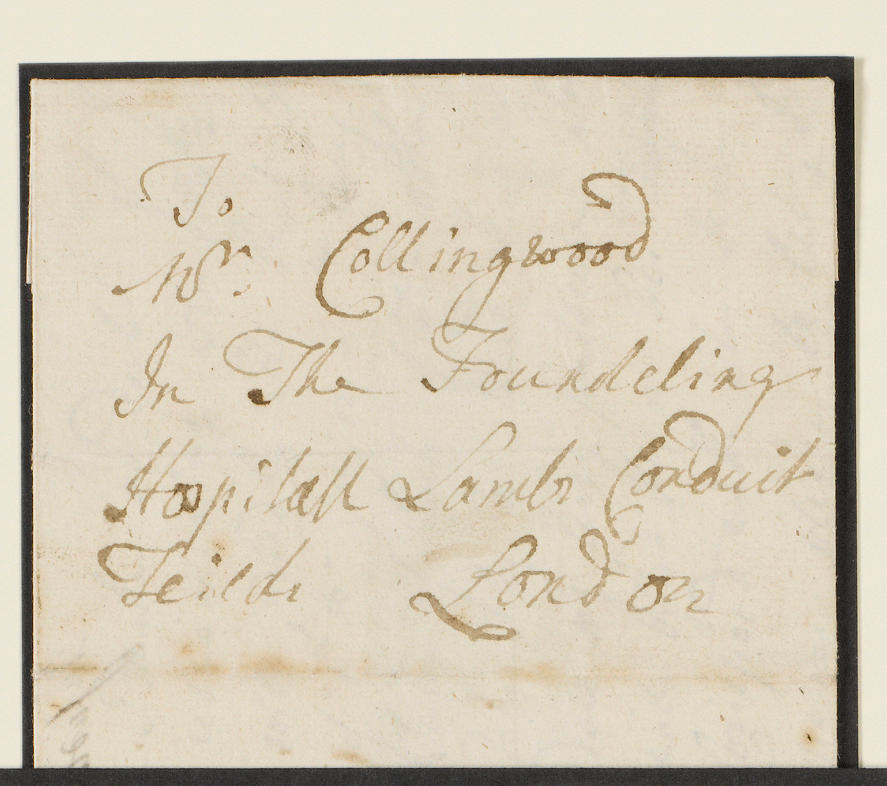 To
Mr Collingwood
In The Foundeling
Hospitall Lambs Conduit
Feilds London